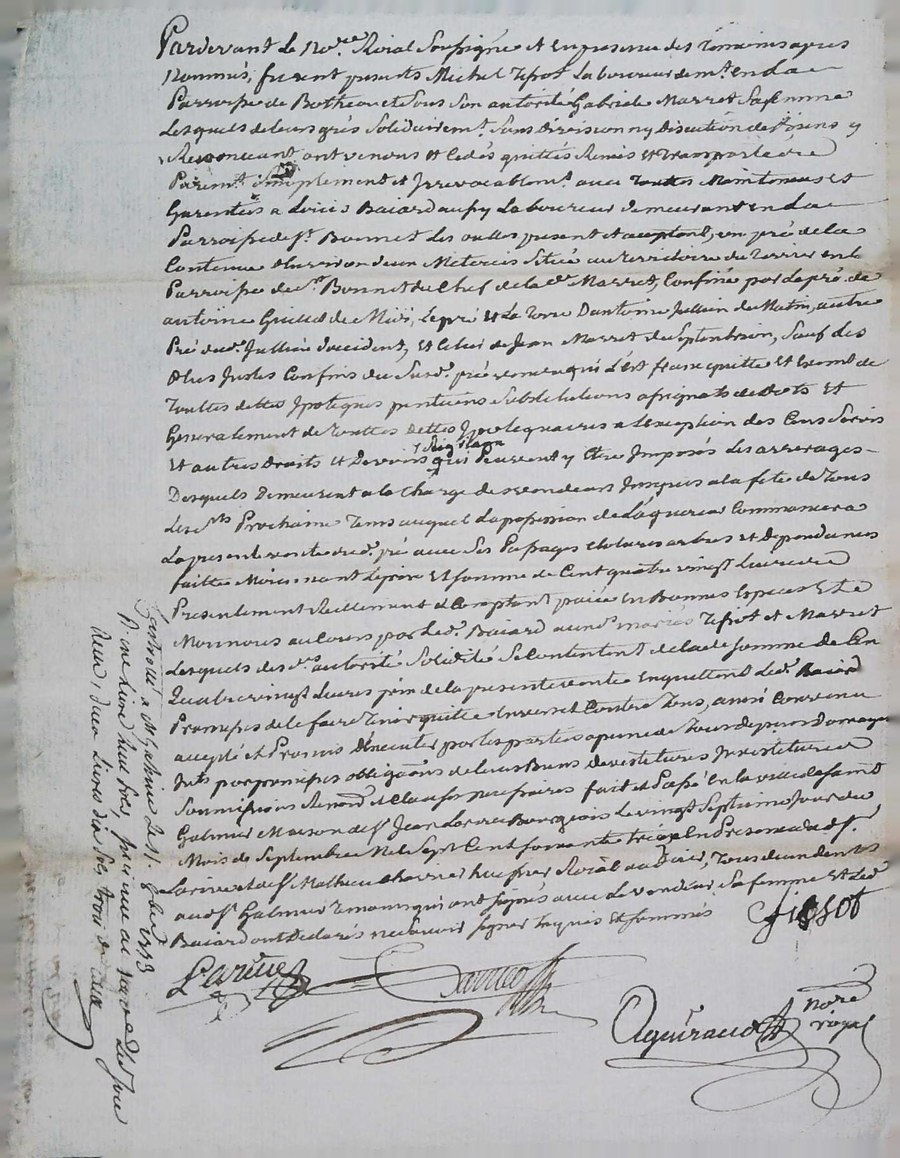 Pardevant Le No.re Roial Soussigné et En presence des Temoins apres
Nommés, furent presents Michel Tissot Laboureur dem.t en La
Parroisse de Botheon et Sous Son autorité Gabriele Marret Sa femme
Lesquels de leurs grés Solidairem.t Sans Division ny Discution de Biens y
Renonceant ont vendus et Cedés quittés Remis et transporté
Purem.t Simplement et Irrevocablem.t avec Touttes Maintenues et
Garenties a Louis Baiard aussy Laboureur demeurant en La
Parroisse de S.t Bonnet Les oulles present et acceptant, un pré de la
Contenue d'environ deux Meterces Situé au Territoire du en la
Parroisse de S.t Bonnet du Chef de la d.e Marret, Confiné par Le pré de
antoine de Midi, Le pré et La Terre D'antoine Jullien du Matin, autre
Pré du d. Jullien d'occident, et Celui de Jean Marret du Septentrion, Sauf des
Plus Justes Confins du Susd. pré vendu qui L'est franc quitte et Exemt de
Touttes dettes Ipoteques pentions Substitutions assignats de dots et
Generalement de Touttes dettes Ipotequaires a l'exception des Cens Servis
Et autres Droits et Devoirs Seigneuriaux qui Peuvent y Etre Imposés Les arrerages
Desquels Demeurent a la Charge des vendeurs Jusques a la fete de Tous
Les S.ts Prochaine Tems auquel La possession de L'aquereur Commancera
La presente vente du d. pré avec Ses Passages Clotures arbres et dependances
faitte Moienant Le prix et Somme de Cent quatre vingt Livres
Presentement Reellement et Comptant paiée En Bonnes Especes Et
Monnoies au Cours par Le d. Baiard aux d. mariés Tissot et Marret
Lesquels des d. autorité Solidité Se Contentent de la de Somme de Cen
Quatre vingt Livres prix de la presente vente En quittent Le d. Baiard
Promesses de le faire Tenir quitte Envers et Contre Tous, ainsi Convenu
accepté et Promis D'executer par les parties a peine de Tous depens Domages
Ints par promesses obligaōns de leurs Biens devestitures Investitures
Soumissions Renonc. et Clauses necessaires fait et Passé En la ville de Saint
Galmier Maison de S.r Jean Larive Bourgeois Le vingt Septieme Jour du
Mois de Septembre Mil Sept Cent Soixante treize En Presence du d. S.r
Larive et de S.r Mathieu huissier Roial Tous deux dem.ts
au d. S.t Galmier Temoins qui ont Signés avec Le vendeur Sa femme et Le d.
Baiard ont Declarés ne Savoir Signer Enquis Et Sommés
Tissot
Larive
Aguiraud
no.re
royal
a S.t Galmier Le 11. 8bre 1773
R. une Livre
Reçu deux Livres dix Sols trois d.